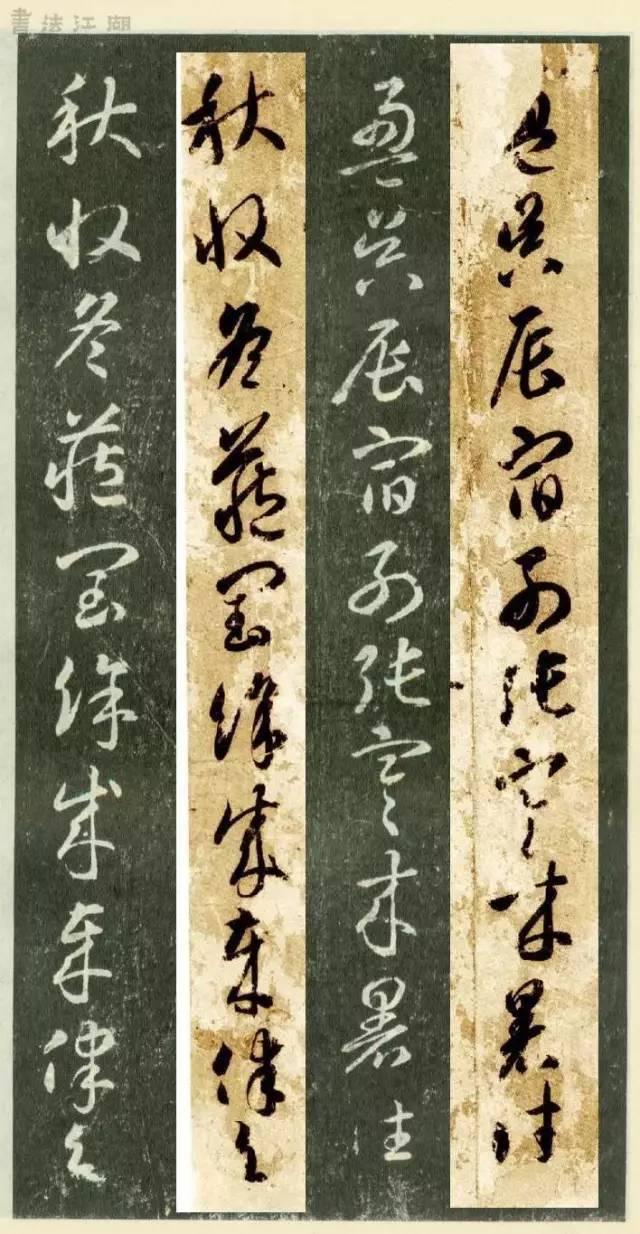 書法江湖
盈昃辰宿列張寒來暑往
盈昃辰宿列張寒來暑往
秋收冬藏閏餘成歲律呂
秋收冬藏閏餘成歲律呂